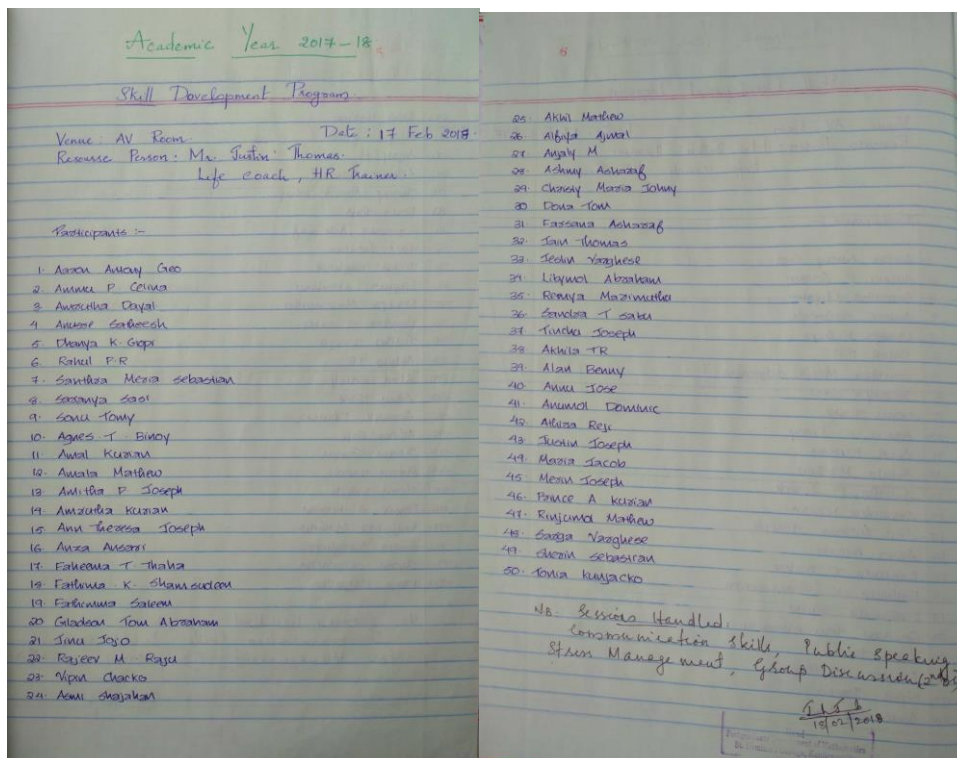 Academic Year 2017-18
Skill Development Program
Venue: AV Room. Date: 17 Feb 2018.
Resourse Person: Mr. Justin Thomas.
Life Coach, HR Trainer.
Participants:-
1. Aaron Antony Geo
2. Ammu P Celina
3. Amrutha Dayal
4. Anusre Satheesh
5. Dhanya K. Gopi
6. Rahul P.R
7. Santhra Meria Sebastian
8. Saranya Sasi
9. Sonu Tomy
10. Agnes T. Binoy
11. Amal Kurian
12. Amala Mathew
13. Amitha P Joseph
14. Amrutha Kurian
15. Ann Theresa Joseph
16. Anza Ansari
17. Faheema T Thaha
18. Fathima K. Shamsudeen
19. Fathimma Saleem
20. Gladson Tom Abraham
21. Jinu Jojo
22. Rajeev M Raju
23. Vipin Chacko
24. Asmi Shajahan
25. Akhil Mathew
26. Ajmal
27. Anjaly M
28. Ashmy Asharaf
29. Christy Maria Johny
30. Dona Tom
31. Farsana Asharaf
32. Jain Thomas
33. Jeslin Varghese
34. Libymol Abraham
35. Remya Marimuthu
36. Sandra T Sabu
37. Tincha Joseph
38. Akhila TR
39. Alan Benny
40. Annu Jose
41. Anumol Dominic
42. Athira Reji
43. Justin Joseph
44. Maria Jacob
45. Merin Joseph
46. Prince A Kurian
47. Rinjumol Mathew
48. Sarga Varghese
49. Sherin Sebastian
50. Tonia Kunjacko
NB. Sessions Handled:
Communication Skills, Public Speaking
Stress Management, Group Discussion
18/02/2018